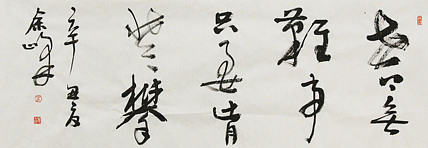 世上無
難事
只要肯
登攀
辛丑夏